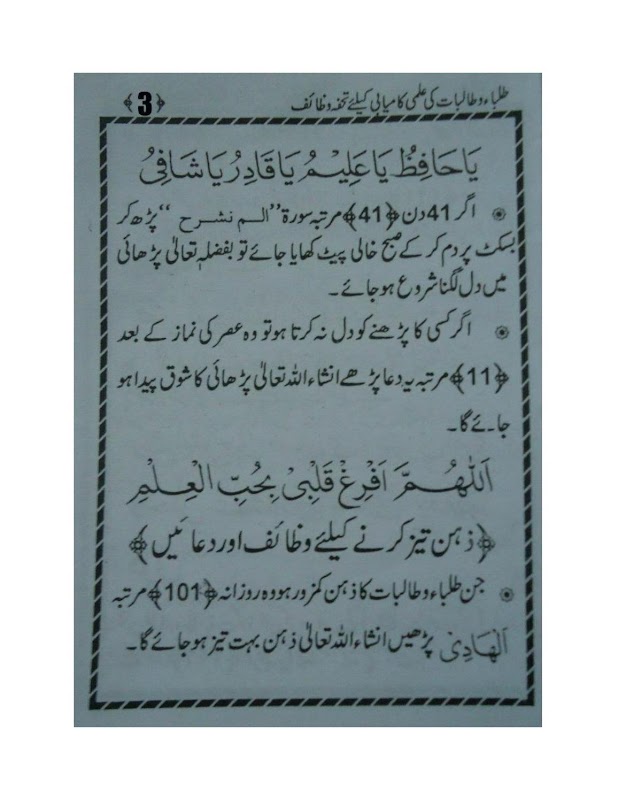 طلباء و طالبات کی علمی کامیابی کیلئے تحفہ وظائف ﴿3﴾
يَا حَافِظُ يَا عَلِيْمُ يَا قَادِرُ يَا شَافِىُ
اگر 41 دن ﴿41﴾ مرتبہ سورۃ ”الم نشرح“ پڑھ کر
بسکٹ پر دم کر کے صبح خالی پیٹ کھایا جائے تو بفضلہٖ تعالیٰ پڑھائی
میں دل لگنا شروع ہو جائے۔
اگر کسی کا پڑھنے کو دل نہ کرتا ہو تو وہ عصر کی نماز کے بعد
﴿11﴾ مرتبہ یہ دعا پڑھے انشاء اللہ تعالیٰ پڑھائی کا شوق پیدا ہو
جائے گا۔
اَللّٰهُمَّ اَفْرِغْ قَلْبِىْ بِحُبِّ الْعِلْمِ
﴿ذہن تیز کرنے کیلئے وظائف اور دعائیں﴾
جن طلباء و طالبات کا ذہن کمزور ہو وہ روزانہ ﴿101﴾ مرتبہ
اَلْهَادِىْ پڑھیں انشاء اللہ تعالیٰ ذہن بہت تیز ہو جائے گا۔